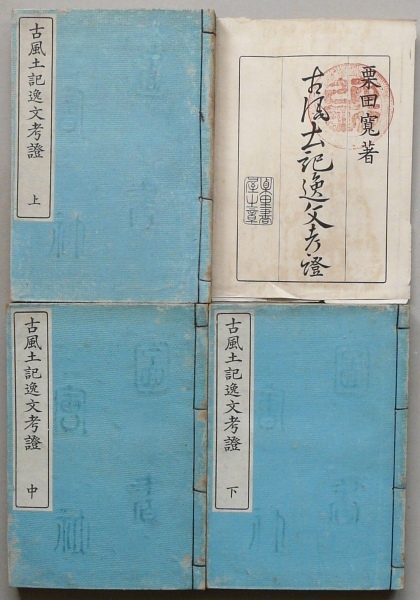 古風土記逸文考證 上
栗田寛著
古風土記逸文考證
古風土記逸文考證 中
古風土記逸文考證 下